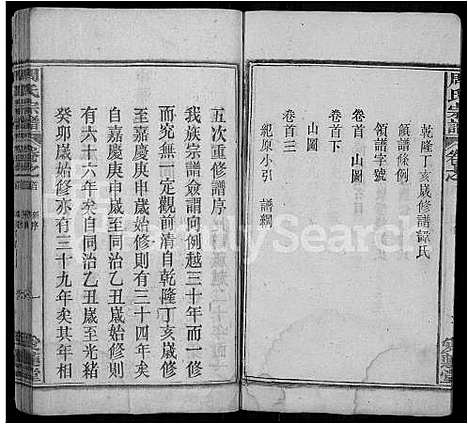 周氏宗譜
乾隆丁亥歲修譜諱氏
領譜條例
領譜字號
卷首 山圖
卷首下
山圖
卷首三
紀原小引 譜綱
五次重修譜序
我族宗譜僉謂向例越三十年而一修
究其實無一定觀前清自乾隆丁亥歲修
至嘉慶庚申歲修則有三十四年矣
自嘉慶庚申歲至同治乙丑歲始修則
有六十六年矣自同治乙丑歲至光緒
癸卯歲始修亦有三十九年矣其年相
周氏宗譜
FamilySearch